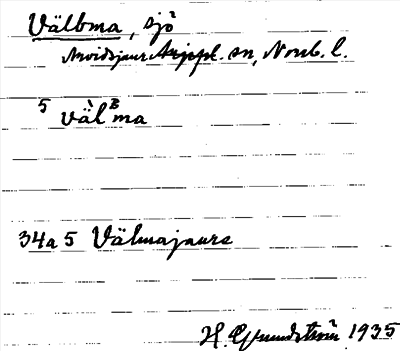 Välbma, sjö
Arvidsjaur Arjepl. sn, Norrb. l.
5 väl̀ᴮma
34a 5 Välmajaure
H. Grundström 1935